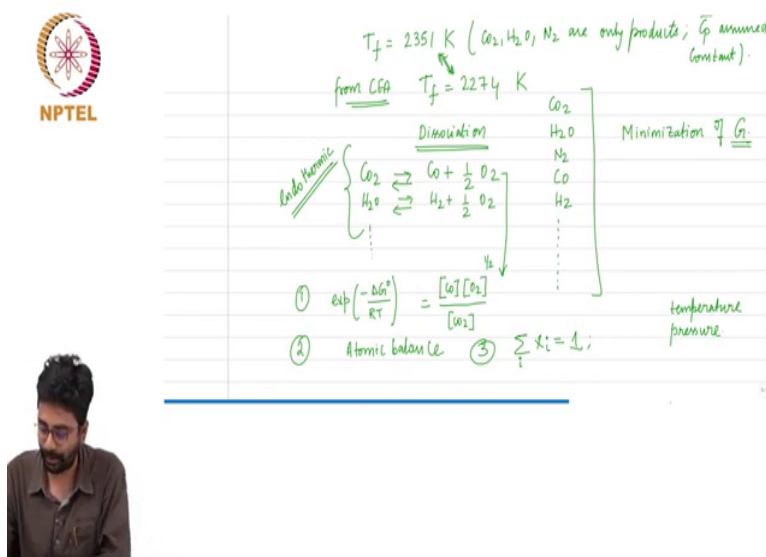 NPTEL
T_f = 2351 K ( CO2, H2O, N2 are only products ; C̄p assumed constant).
from CEA T_f = 2274 K
Dissociation
endothermic
CO2 ⇌ CO + 1/2 O2
H2O ⇌ H2 + 1/2 O2
CO2
H2O
N2
CO
H2
Minimization of G.
① exp(-ΔG°/RT) = [CO][O2]^1/2 / [CO2]
② Atomic balance ③ Σ_i x_i = 1 ;
temperature
pressure